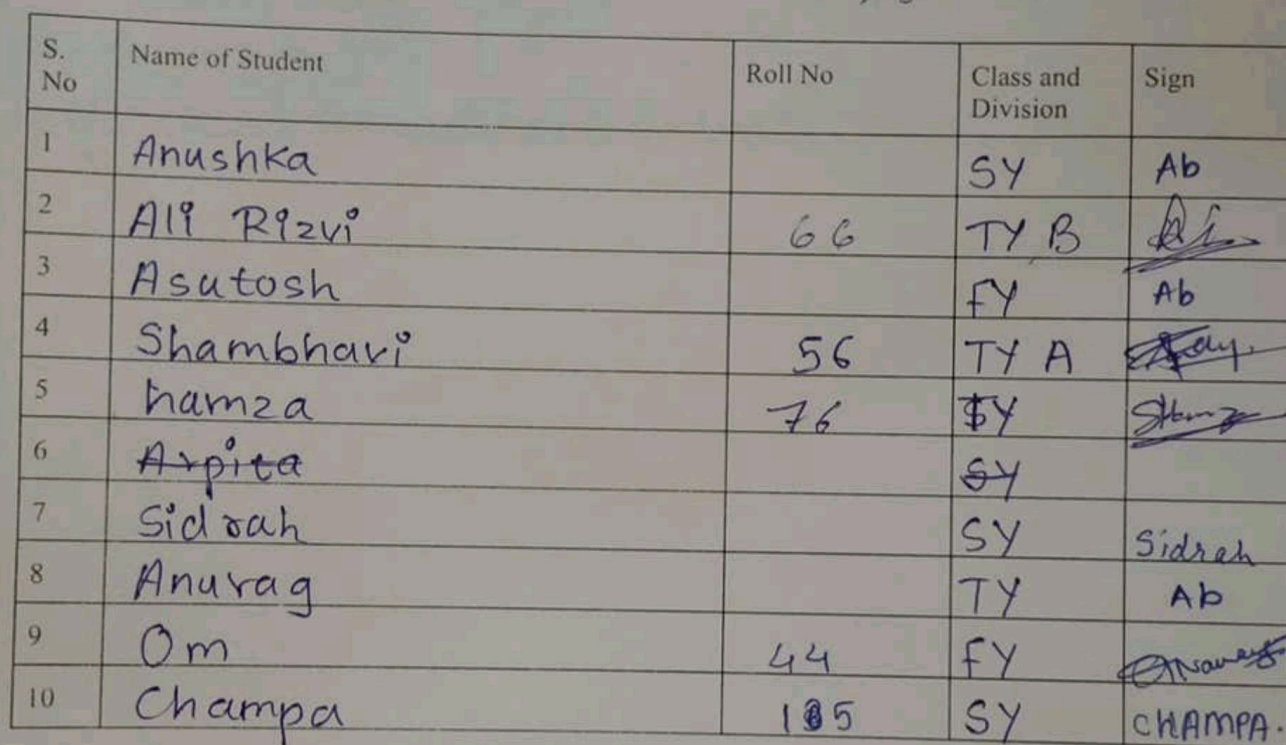 S. No Name of Student Roll No Class and Division Sign
1 Anushka SY Ab
2 Ali Rizvi 66 TY B
3 Asutosh FY Ab
4 Shambhavi 56 TY A
5 hamza 76 SY
6 Arpita SY
7 Sidrah SY Sidrah
8 Anurag TY Ab
9 Om 44 FY
10 Champa SY CHAMPA.